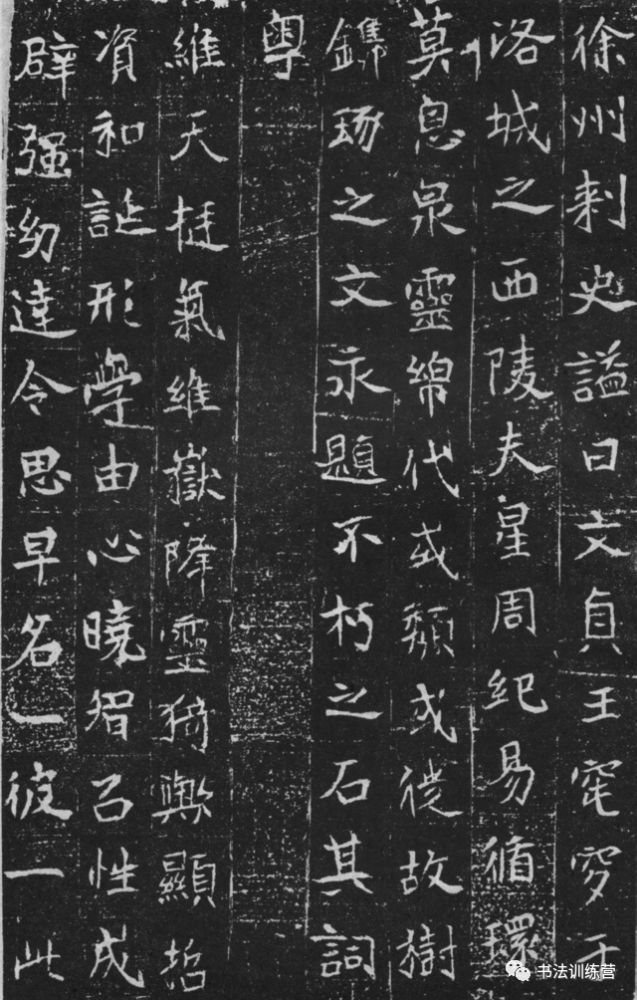 徐州刺史謚曰文貞王窀穸于
洛城之西陵夫星周紀易循環
莫息泉靈綿代或頹或徙故樹
鐫琢之文永題不朽之石其詞
粤
維天挺氣維嶽降靈猗歟顯哲
資和誕形學由心曉智㠯性成
辟强幼達令思早名一彼一此
书法训练营